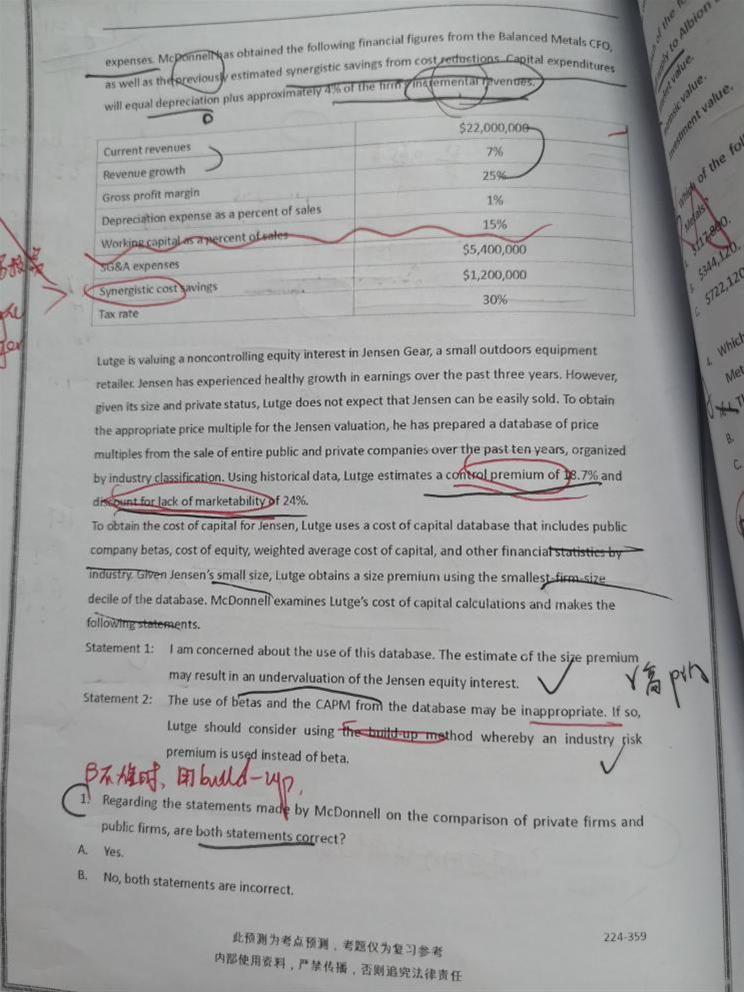 expenses. McDonnell has obtained the following financial figures from the Balanced Metals CFO,
as well as the previously estimated synergistic savings from cost reductions. Capital expenditures
will equal depreciation plus approximately 4% of the firm's incremental revenues.
Current revenues $22,000,000
Revenue growth 7%
Gross profit margin 25%
Depreciation expense as a percent of sales 1%
Working capital as a percent of sales 15%
SG&A expenses $5,400,000
Synergistic cost savings $1,200,000
Tax rate 30%
Lutge is valuing a noncontrolling equity interest in Jensen Gear, a small outdoors equipment
retailer. Jensen has experienced healthy growth in earnings over the past three years. However,
given its size and private status, Lutge does not expect that Jensen can be easily sold. To obtain
the appropriate price multiple for the Jensen valuation, he has prepared a database of price
multiples from the sale of entire public and private companies over the past ten years, organized
by industry classification. Using historical data, Lutge estimates a control premium of 18.7% and
discount for lack of marketability of 24%.
To obtain the cost of capital for Jensen, Lutge uses a cost of capital database that includes public
company betas, cost of equity, weighted average cost of capital, and other financial statistics by
industry. Given Jensen's small size, Lutge obtains a size premium using the smallest-firm-size
decile of the database. McDonnell examines Lutge's cost of capital calculations and makes the
following statements.
Statement 1: I am concerned about the use of this database. The estimate of the size premium
may result in an undervaluation of the Jensen equity interest.
Statement 2: The use of betas and the CAPM from the database may be inappropriate. If so,
Lutge should consider using the build-up method whereby an industry risk
premium is used instead of beta.
用build-up,
1. Regarding the statements made by McDonnell on the comparison of private firms and
public firms, are both statements correct?
A. Yes.
B. No, both statements are incorrect.
此预测为考点预测，考题仅为复习参考
内部使用资料，严禁传播，否则追究法律责任
224-359
to Albion
value.
investment value.
of the fol
Metals
$344,120.
$722,120
4. Which
Met
B.
C.